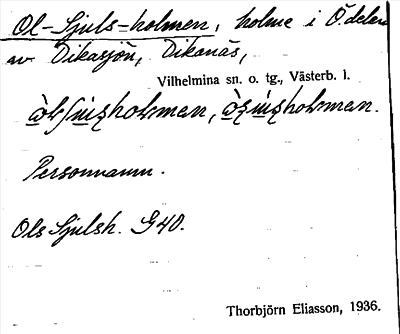 Ol-Sjuls-holmen, holme i Ö. delen
av Dikasjön, Dikanäs,
Vilhelmina sn. o. tg., Västerb. l.
Personnamn.
Ols Sjulsh. G40.
Thorbjörn Eliasson, 1936.